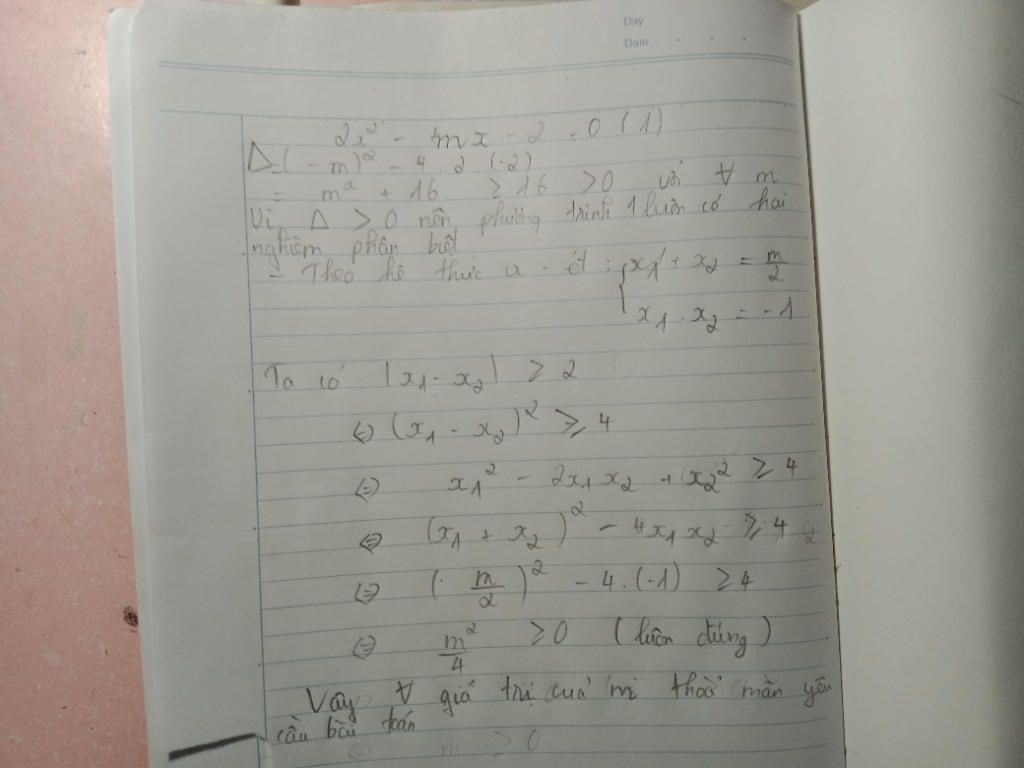 Day
Date
2x² - mx - 2 = 0 (1)
Δ = (-m)² - 4 . 2 . (-2)
= m² + 16 ≥ 16 > 0 với ∀ m
Vì Δ > 0 nên phương trình 1 luôn có hai
nghiệm phân biệt
- Theo hê thức vi - ét : { x₁ + x₂ = m/2
x₁ . x₂ = -1
Ta có |x₁ - x₂| ≥ 2
⇔ (x₁ - x₂)² ≥ 4
⇔ x₁² - 2x₁x₂ + x₂² ≥ 4
⇔ (x₁ + x₂)² - 4x₁x₂ ≥ 4
⇔ (m/2)² - 4.(-1) ≥ 4
⇔ m²/4 ≥ 0 (luôn đúng)
Vậy ∀ giá trị của m thoả mãn yêu
cầu bài toán
m > 0